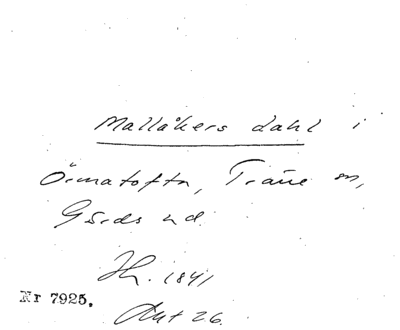 Mallåkers dahl i
Örmatofta, Träne sn,
Gärds hd
Hk. 1841
Akt 26.
Nr 7925.